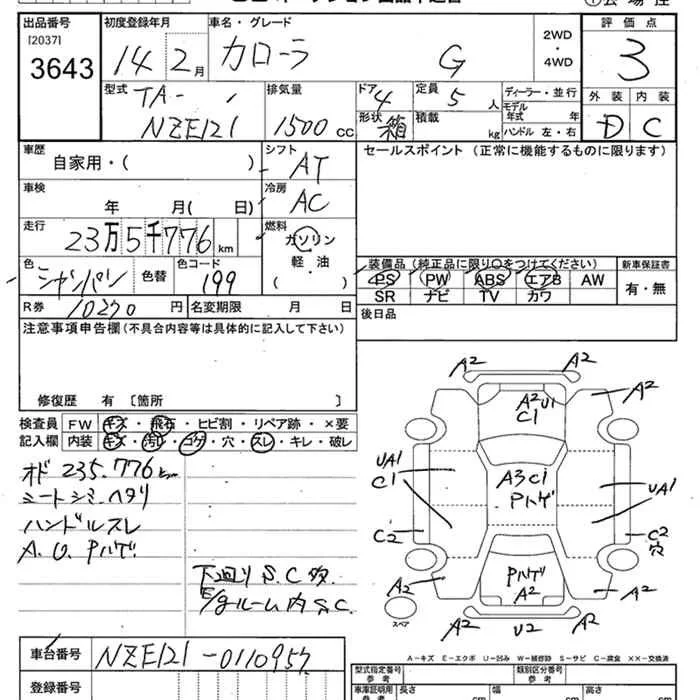 ①会場控
出品番号
[2037]
3643
初度登録年月
14 2月
車名・グレード
カローラ G
2WD
・
4WD
評価点
3
外装 内装
D C
型式
TA-
NZE121
排気量
1500 cc
ドア
4
形状
箱
定員
5 人
積載
kg
ディーラー・並行
モデル
年式 年
ハンドル 左・右
車歴
自家用・( )
シフト
AT
セールスポイント (正常に機能するものに限ります)
車検
年 月( 日)
冷房
AC
走行
23万5千776 km
燃料
ガソリン
軽・油
( )
色
シャンパン
色替
色コード
199
装備品 (純正品に限り○をつけてください)
PS PW ABS エアB AW
SR ナビ TV カワ
新車保証書
有・無
R券 10270 円
名変期限 月 日
後日品
注意事項申告欄 (不具合内容等は具体的に記入して下さい)
修復歴 有 〔箇所 〕
検査員
記入欄
FW キズ・飛石・ヒビ割・リペア跡・×要
内装 キズ・汚れ・コゲ・穴・スレ・キレ・破レ
オド 235.776km
シートシミ・ヘタリ
ハンドルスレ
A.U.Pハゲ
下廻りS.C
E/gルーム内S.C.
A2
A2
A2
A2 U1
C1
UA1
C1
A3 C1
Pハゲ
UA1
C2
C2
穴
A2
Pハゲ
A2
A2
スペア
A2
U2
A2
A-キズ E-エクボ U-凹み W-補修跡 S-サビ C-腐食 XX-交換済
車台番号
NZE121-0110957
登録番号
型式指定番号
参考
類別区分番号
参考
車庫証明用
参考
長さ cm
幅 cm
高さ cm